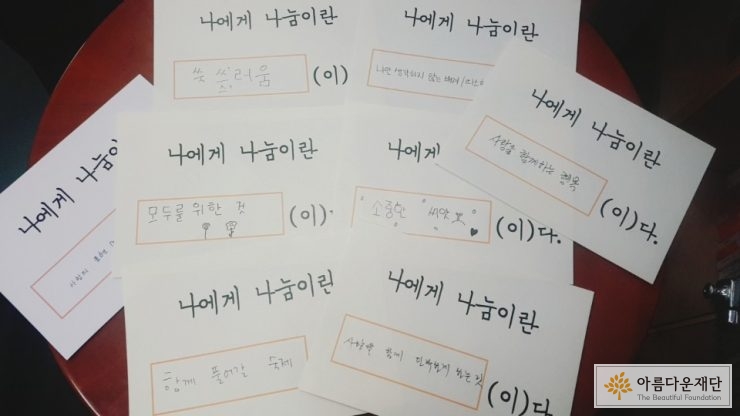 나에게 나눔이란
쑥 쓰러움
(이)
나에게 나눔이란
나만 생각하지 않는 배려
나에게 나눔이란
사람을 함께하는 행복
(이)다.
나에게 나눔이란
나에게 나눔이란
모두를 위한 것
(이)
나에게
"소중한" "씨앗"
(이)다.
나에게 나눔이란
함께 풀어갈 숙제
나에게 나눔이란
사람을 함께 하는 것
(이)다.
아름다운재단
The Beautiful Foundation